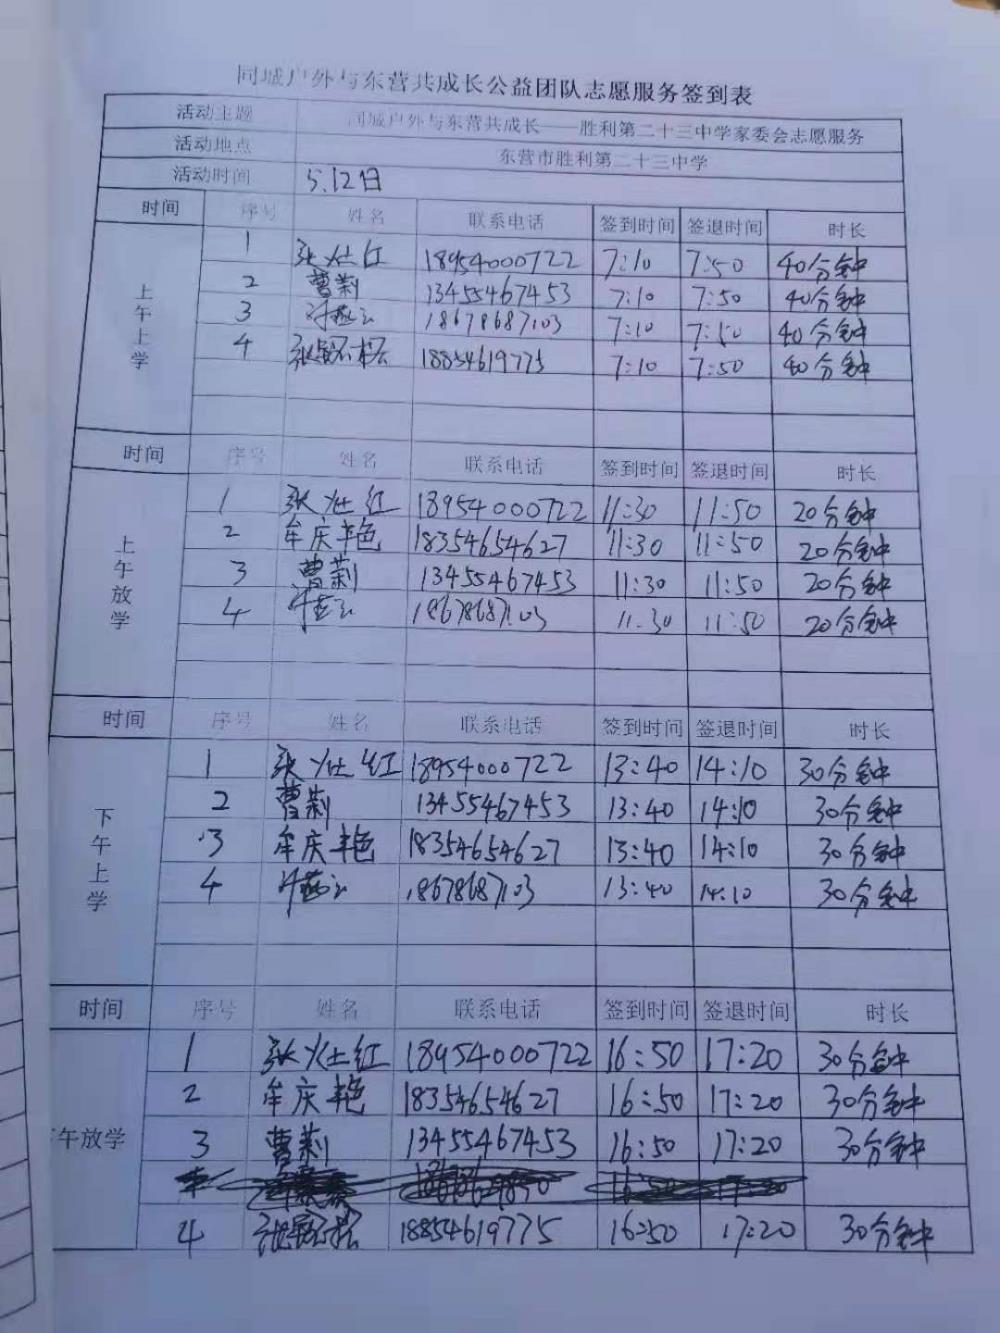 同城户外与东营共成长公益团队志愿服务签到表
活动主题 同城户外与东营共成长——胜利第二十三中学家委会志愿服务
活动地点 东营市胜利第二十三中学
活动时间 5.12日
时间 序号 姓名 联系电话 签到时间 签退时间 时长
上午上学
1 张灶红 18954000722 7:10 7:50 40分钟
2 曹莉 13455467453 7:10 7:50 40分钟
3 18678687103 7:10 7:50 40分钟
4 18854619775 7:10 7:50 40分钟
时间 序号 姓名 联系电话 签到时间 签退时间 时长
上午放学
1 张灶红 18954000722 11:30 11:50 20分钟
2 牟庆艳 18354654627 11:30 11:50 20分钟
3 曹莉 13455467453 11:30 11:50 20分钟
4 18678687103 11.30 11:50 20分钟
时间 序号 姓名 联系电话 签到时间 签退时间 时长
下午上学
1 张灶红 18954000722 13:40 14:10 30分钟
2 曹莉 13455467453 13:40 14:10 30分钟
3 牟庆艳 18354654627 13:40 14:10 30分钟
4 18678687103 13:40 14:10 30分钟
时间 序号 姓名 联系电话 签到时间 签退时间 时长
午放学
1 张灶红 18954000722 16:50 17:20 30分钟
2 牟庆艳 18354654627 16:50 17:20 30分钟
3 曹莉 13455467453 16:50 17:20 30分钟
4 18854619775 16:50 17:20 30分钟